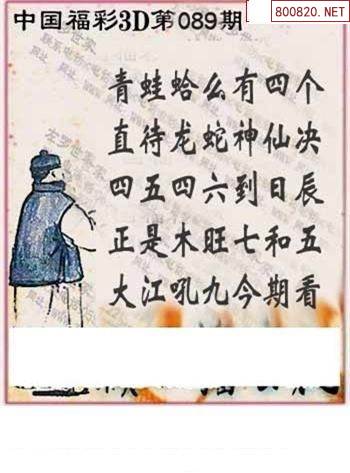 800820.NET
中国福彩3D第089期
青蛙蛤么有四个
直待龙蛇神仙决
四五四六到日辰
正是木旺七和五
大江吼九今期看